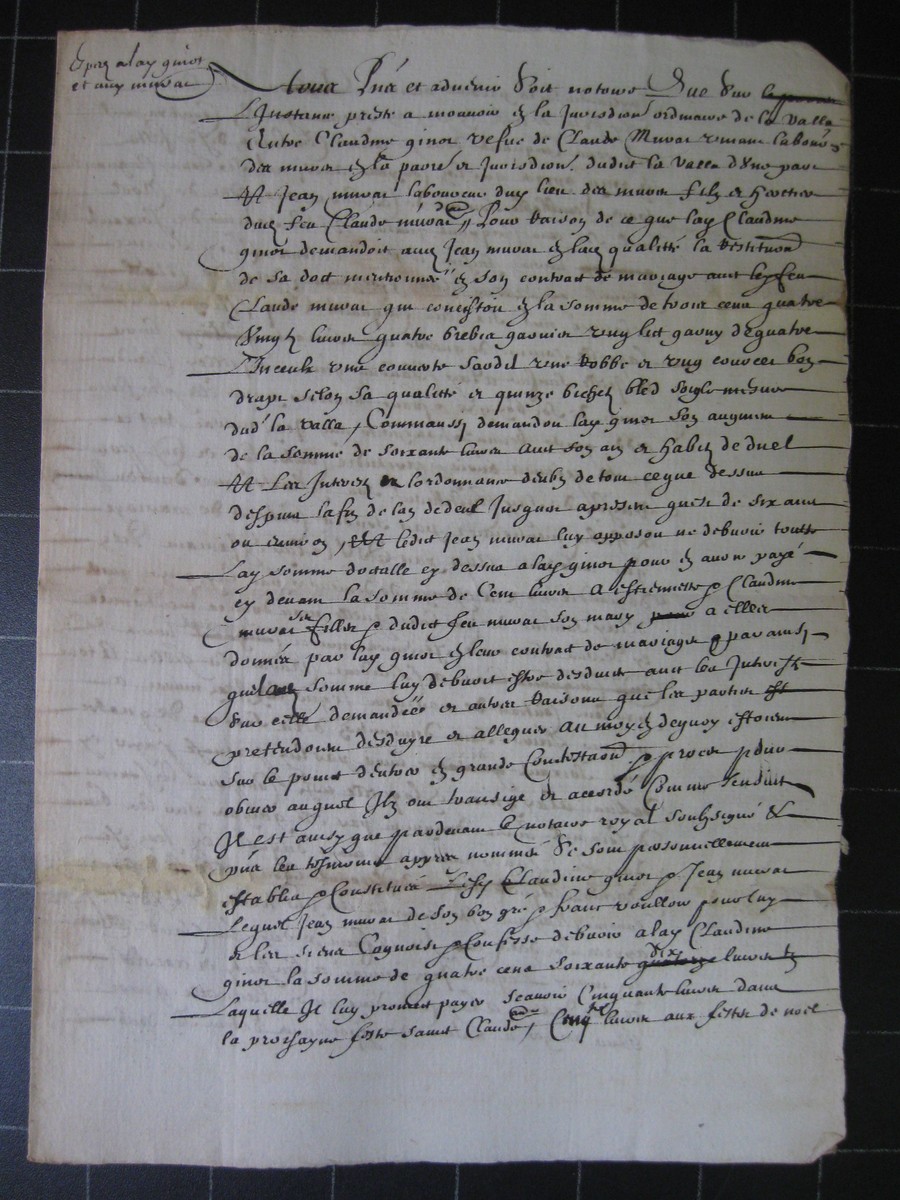 Expé a lad ginot
et aud murat
A tous pnts et advenir soit notoire que sur
L'Instance preste a mouvoir en la Jurisdion ordinaire de la Valla
Entre Claudine ginot vefve de Claude Murat vivant labour
des murat en la paroe et Jurisdion dudict la Valla d'une part
Et Jean murat laboureur dud lieu des murat filz et heritier
dud feu Claude murat Pour Raison de ce que lad Claudine
ginot demandoit aud Jean murat en lad qualitté la Restituon
de sa dott mentionnée en son contrat de mariage avec led feu
Claude murat qui consiston en la somme de trois cens quatre
vingtz livres quatre brebis garnies ung lict garny de quatre
Linceulz une couverte une Robbe et ung couvet bon
drapt selon sa qualitté et quinze bichetz bled seigle mesure
dud la Valla, Comme aussy demandon lad ginot son augment
de la somme de soixante livres avec son an et habitz de duel
Et les Interestz et lordonnance deubz de tout ce que dessus
despuis la fin de lan de deul Jusques a present quest de six ans
ou environ, ledict Jean murat luy opposon ne debvoir toutte
Lad somme dotalle cy dessus a lad ginot pour en avoir payé
cy devant la somme de Cent livres a Estiennette et Claudine
murat ses filles et dudict feu murat son mary a elles
donnée par lad ginot en leur contrat de mariage et par ainsy
quelad somme luy debvoit estre desduitte avec les Interestz
sur celle demandée et autres Raisons que les parties
pretendoient desduyre et alleguer au moyen dequoy estoient
sur le point dentrer en grande Contestaon et proces pour
obvier auquel Ilz ont transigé et acordé Comme sensuict
Il est ainsy que pardevant le notaire royal soubzsigné &
pnts les tesmoins appres nommés se sont personnellement
establis et Constitués Lesd Claudine ginot et Jean murat
Lequel Jean murat de son bon gré et franc voulloir pour luy
et les siens Cognoist et Confesse debvoir a lad Claudine
ginot la somme de quatre cens soixante dix livres
Laquelle Il luy promect payer scavoir Cinquante livres dans
la prochayne feste sainct Claude, livres aux festes de noel